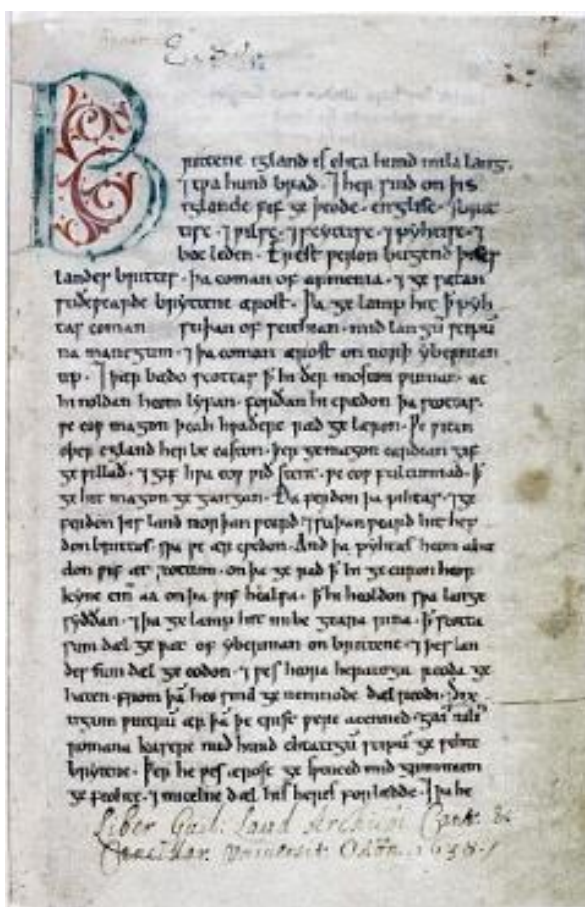 Brittene igland is ehta hund mila lang.
⁊ tƿa hund brad. ⁊ her sind on þis
iglande fif ge þeode. englisc. ⁊ brit
tisc. ⁊ ƿilsc. ⁊ scyttisc. ⁊ pyhtisc. ⁊
boc leden. Erest ƿeron bugend þises
landes brittes. þa coman of armenia. ⁊ ge sætan
suðeƿearde bryttene ærost. Þa ge lamp hit þ̄ pyh
tas coman suþan of scithian. mid langū scipū
na manegum. ⁊ þa coman ærost on norþ ybernian
up. ⁊ þær bædo scottas þ̄ hi ðer moston ƿunian. ac
hi noldan heom lyfan. forðan hi cƿædon þa scottas.
ƿe eoƿ magon þeah hƿaðere ræd ge læron. Ƿe ƿitan
oþer egland her be easton. þer ge magon eardian gif
ge ƿillað. ⁊ gif hƿa eoƿ ƿið stent. ƿe eoƿ fultumiað. þ̄
ge hit magon ge gangan. Ða ferdon þa pihtas. ⁊ ge
ferdon þis land norþan ƿeard. ⁊ suþan ƿeard hit hef
don brittas. sƿa ƿe ær cƿedon. And þa pyhtas heom abæ
don ƿif æt scottum. on þa ge rad þ̄ hi ge curon heor
kyne cin̄ aa on þa ƿif healfa. þ̄ hi heoldon sƿa lange
syððan. ⁊ þa ge lamp hit imbe geara rina. þ̄ scotta
sum dæl ge ƿat of ybernian on brittene. ⁊ þes lan
des sum dæl ge eodon. ⁊ ƿes heora heratoga reoda ge
haten. from þā heo sind ge nemnode dæl reodi. Six
tigum ƿintrū ær þā þe crist ƿere acenned. gaiꝰ iuliꝰ
romana kasere mid hund ehtatigū scipū ge sohte
brytene. Þer he ƿes ærost ge sƿenced mid grimmum
ge feohte. ⁊ micelne dæl his heres forlædde. ⁊ þa he
Liber Guil: Laud Archiepi Cant: &
Cancellar. Universit. Oxon. 1636.